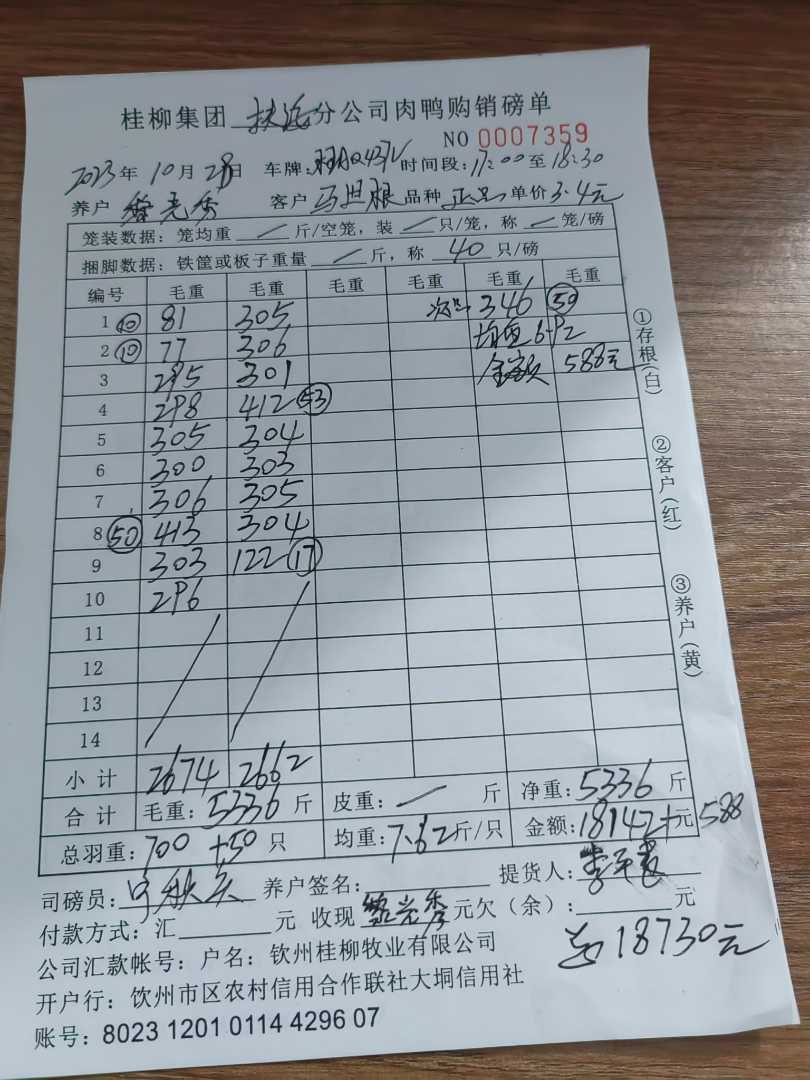 桂柳集团 扶 分公司肉鸭购销磅单
NO 0007359
2023年 10月 28日 车牌: 时间段:17:00至18:30
养户 黎光秀 客户 马世 品种 正品 单价3.4元
笼装数据: 笼均重 / 斤/空笼, 装 / 只/笼, 称 / 笼/磅
捆脚数据: 铁筐或板子重量 / 斤, 称 40 只/磅
编号 毛重 毛重 毛重 毛重 毛重 毛重
1 ⑩ 81 305 次品 346 ㊿
2 ⑩ 77 306 均重 6.92
3 295 301 金额 588元
4 298 412 (53)
5 305 304
6 300 303
7 306 305
8 ㊿ 413 304
9 303 122 ⑰
10 296
11
12
13
14
小计 2674 2662
合计 毛重: 5336 斤 皮重: / 斤 净重: 5336 斤
总羽重: 700 +50 只 均重: 7.62斤/只 金额: 18142+元 588
司磅员: 养户签名: 提货人:
付款方式: 汇 元 收现 黎光秀 元欠(余): 元
总18730元
公司汇款帐号: 户名: 钦州桂柳牧业有限公司
开户行: 饮州市区农村信用合作联社大垌信用社
账号: 8023 1201 0114 4296 07
①存根(白)
②客户(红)
③养户(黄)